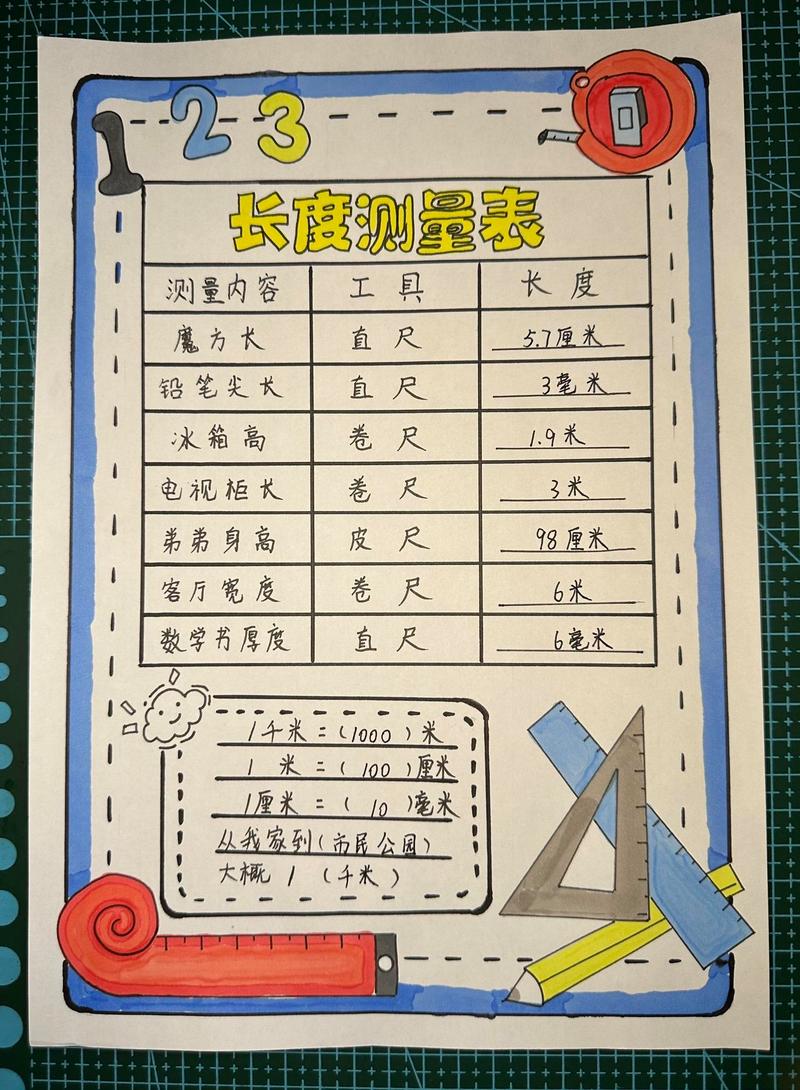 1 2 3
长度测量表
测量内容 工具 长度
魔方长 直尺 5.7厘米
铅笔尖长 直尺 3毫米
冰箱高 卷尺 1.9米
电视柜长 卷尺 3米
弟弟身高 皮尺 98厘米
客厅宽度 卷尺 6米
数学书厚度 直尺 6毫米
1千米=(1000)米
1米=(100)厘米
1厘米=(10)毫米
从我家到(市民公园)
大概1(千米)